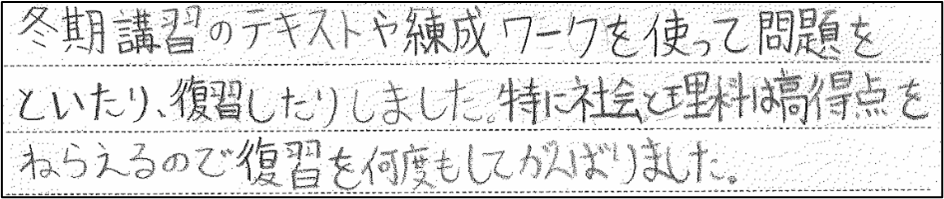 冬期講習のテキストや練成ワークを使って問題を
といたり、復習したりしました。特に社会と理科は高得点を
ねらえるので復習を何度もしてがんばりました。